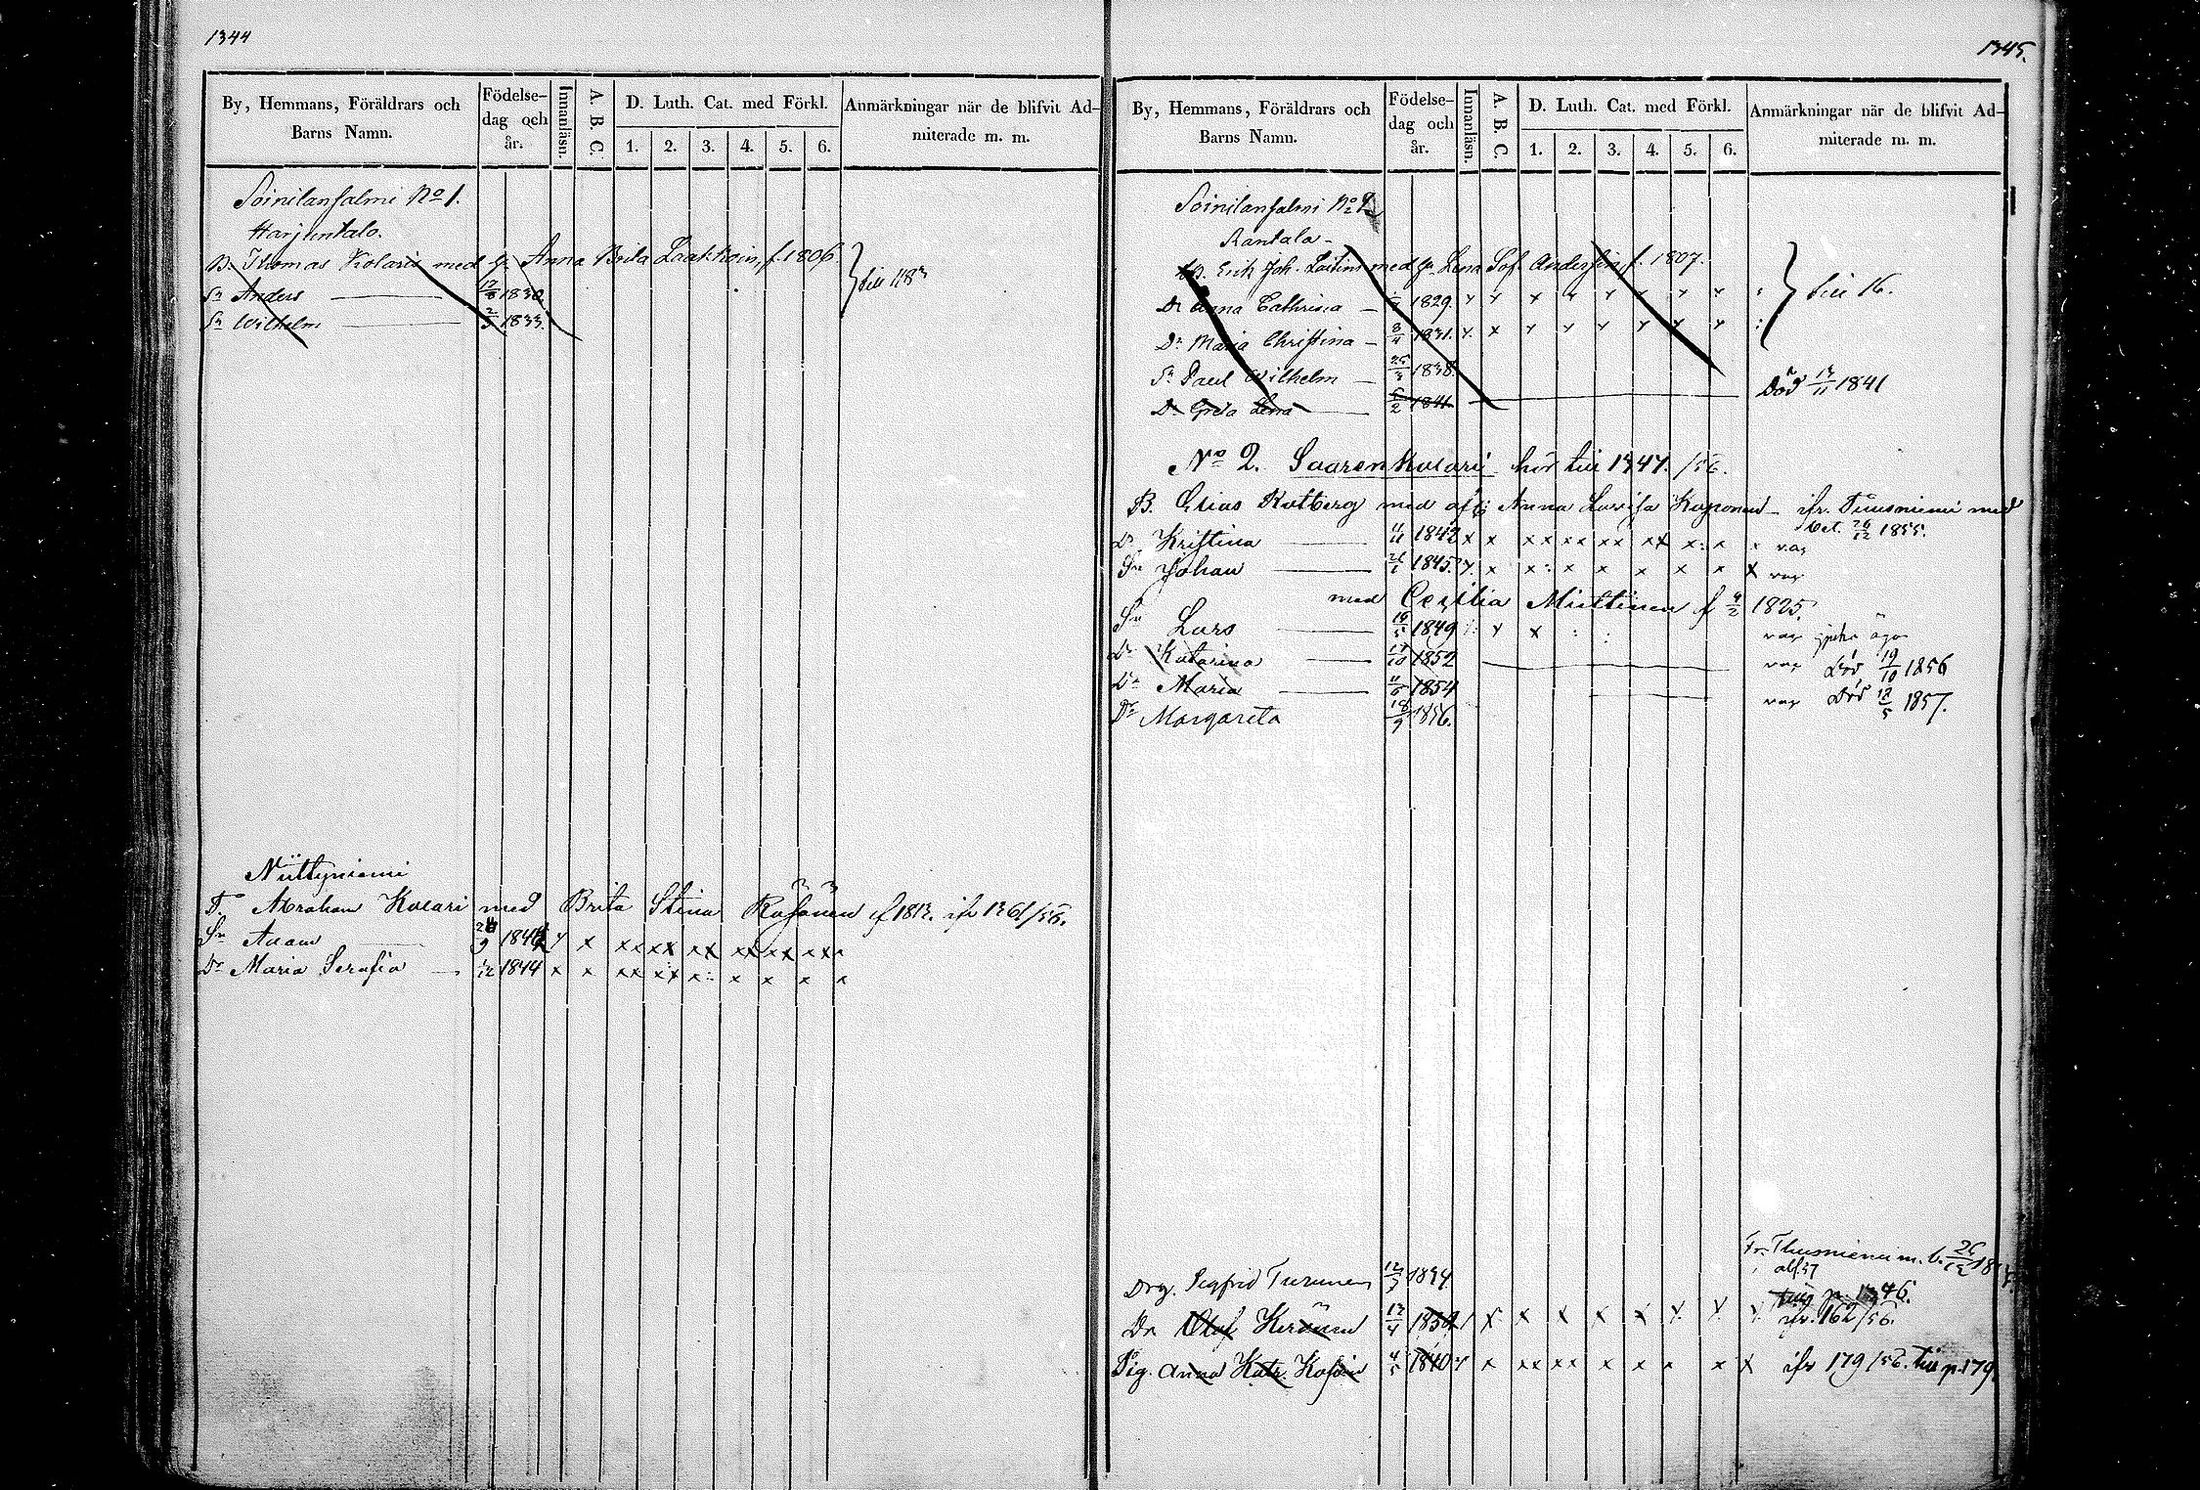 1344
By, Hemmans, Föräldrars och Barns Namn.
Födelse-dag och år.
Innanläsn.
A. B. C.
D. Luth. Cat. med Förkl.
1. 2. 3. 4. 5. 6.
Anmärkningar när de blifvit Ad-
miterade m. m.
Soinilansalmi No 1.
Harjuntalo.
B. Thomas Kolari med h. Anna Brita Laakkoin, f. 1806.
Sn Anders 1830
Sn Wilhelm 1833.
Niittyniemi
T. Abraham Kolari med Brita Stina Räsänen f 1813. ifr 1361/56.
Sn Adam
Dr Maria Serafia 1844 x x xx xx x x x x x
1345.
By, Hemmans, Föräldrars och Barns Namn.
Födelse-dag och år.
Innanläsn.
A. B. C.
D. Luth. Cat. med Förkl.
1. 2. 3. 4. 5. 6.
Anmärkningar när de blifvit Ad-
miterade m. m.
Soinilansalmi No 2
Rantala
B. Erik Joh. med h. Lena Sof. Andersin, f. 1807.
Dr Anna Cathrina 1829.
till 16.
Dr Maria Christina 8/4 1831.
Sn Paul Wilhelm 25/3 1838.
Dr Greta Lena 5/2 1841 Död 13/11 1841
No 2. Saaren Kolari hör till 1347./56.
B. Elias Rotberg med afl: Anna Lovisa Kaponen ifr. Tuusniemi med
bet. 26/12 1855.
Dr Kristina 4/11 1842 x x xx xx xx xx x x x vac
Sn Johan 21/1 1845. x x x x x x x x vac
med Cecilia Miettinen f 4/2 1825.
Sn Lars 19/5 1849 vac
Dr Katarina 17/10 1852 vac Död 19/10 1856
Dr Maria 11/6 1854 vac Död 12/5 1857.
Dr Margareta 18/9 1856.
Fr. Thusniemi m. b. 26/12
Drg. Sigfrid Turunen 12/3 1834
p. 1346.
Dr Olof Keränen 13/4 ifr. 162/56.
Pig. Anna Katr. 4/5 1840 x xx xx x x x x x ifr 179/56. till p. 179